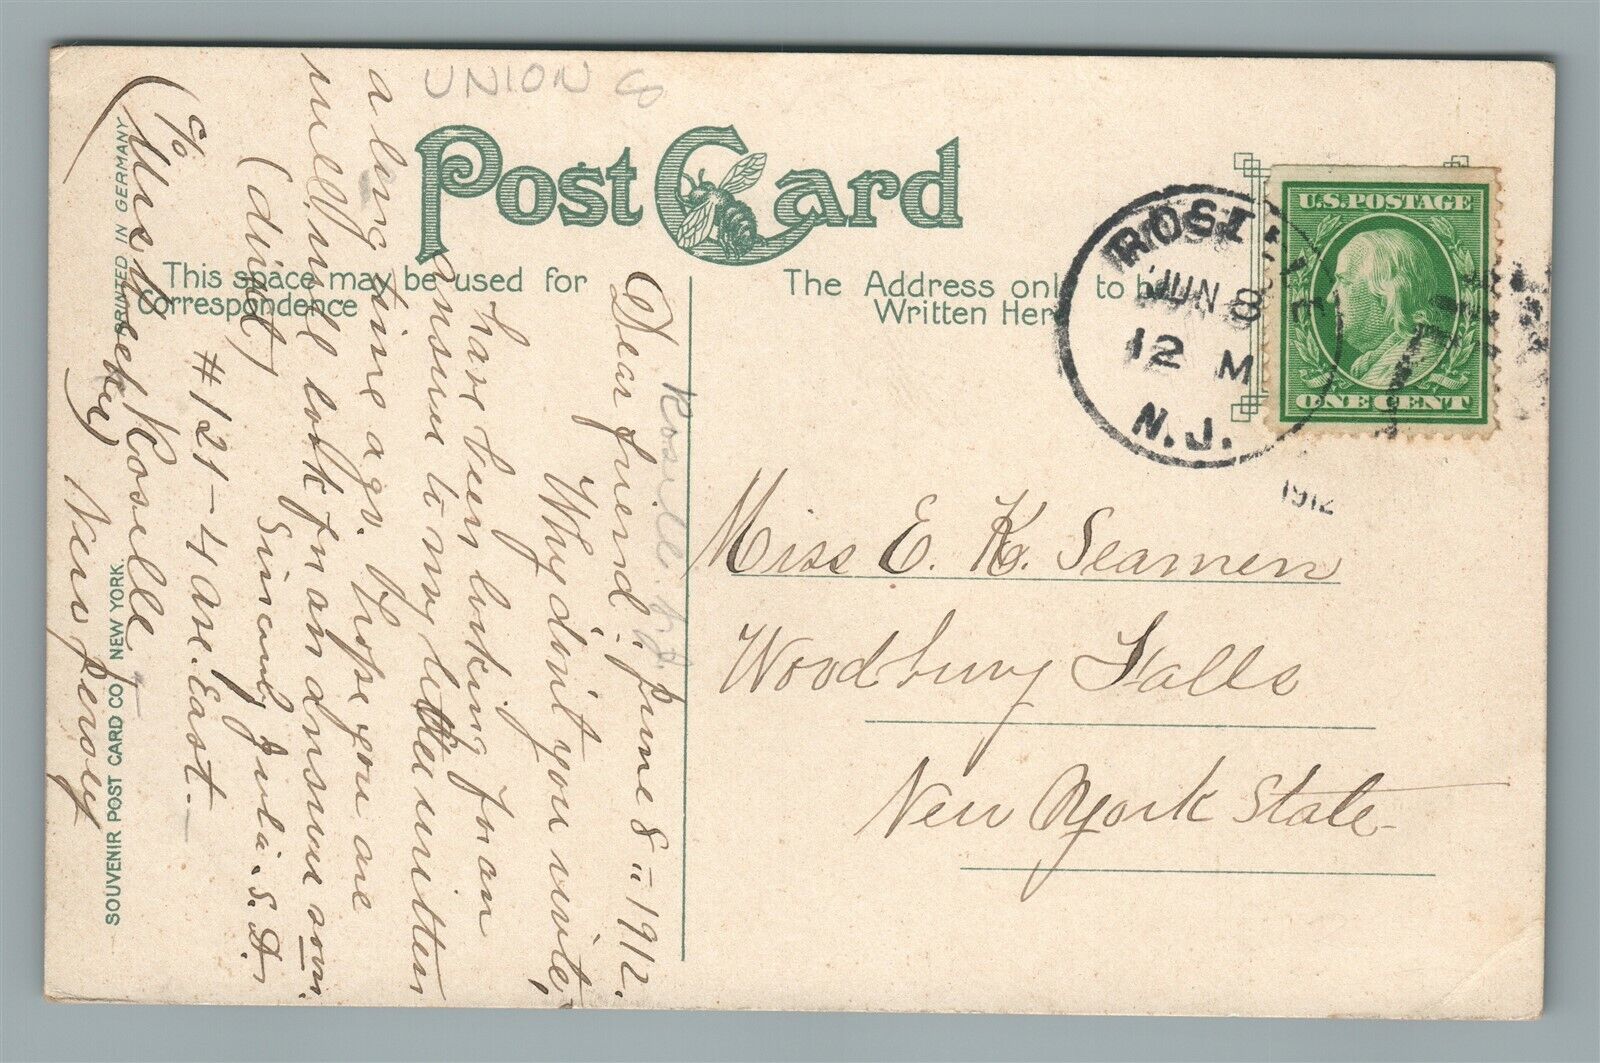 UNION Co
Post Card
This space may be used for
Correspondence
The Address only to be
Written Here
U.S. POSTAGE
ONE CENT
ROSELLE
JUN 8
12 M
N.J.
1912
Miss E. K. Seamen
Woodbury Falls
New York State
Roselle. N.J.
Dear friend:. June 8 = 1912.
Why don't you write,
have been looking for an
answer to my letter written
a long time ago. Hope you are
well. will look for an answer soon.
(direct) Sincerely Julia. S. D.
#121-4 Ave. East.
c/o (Mrs Roselle
New Jersey
PRINTED IN GERMANY
SOUVENIR POST CARD CO NEW YORK.